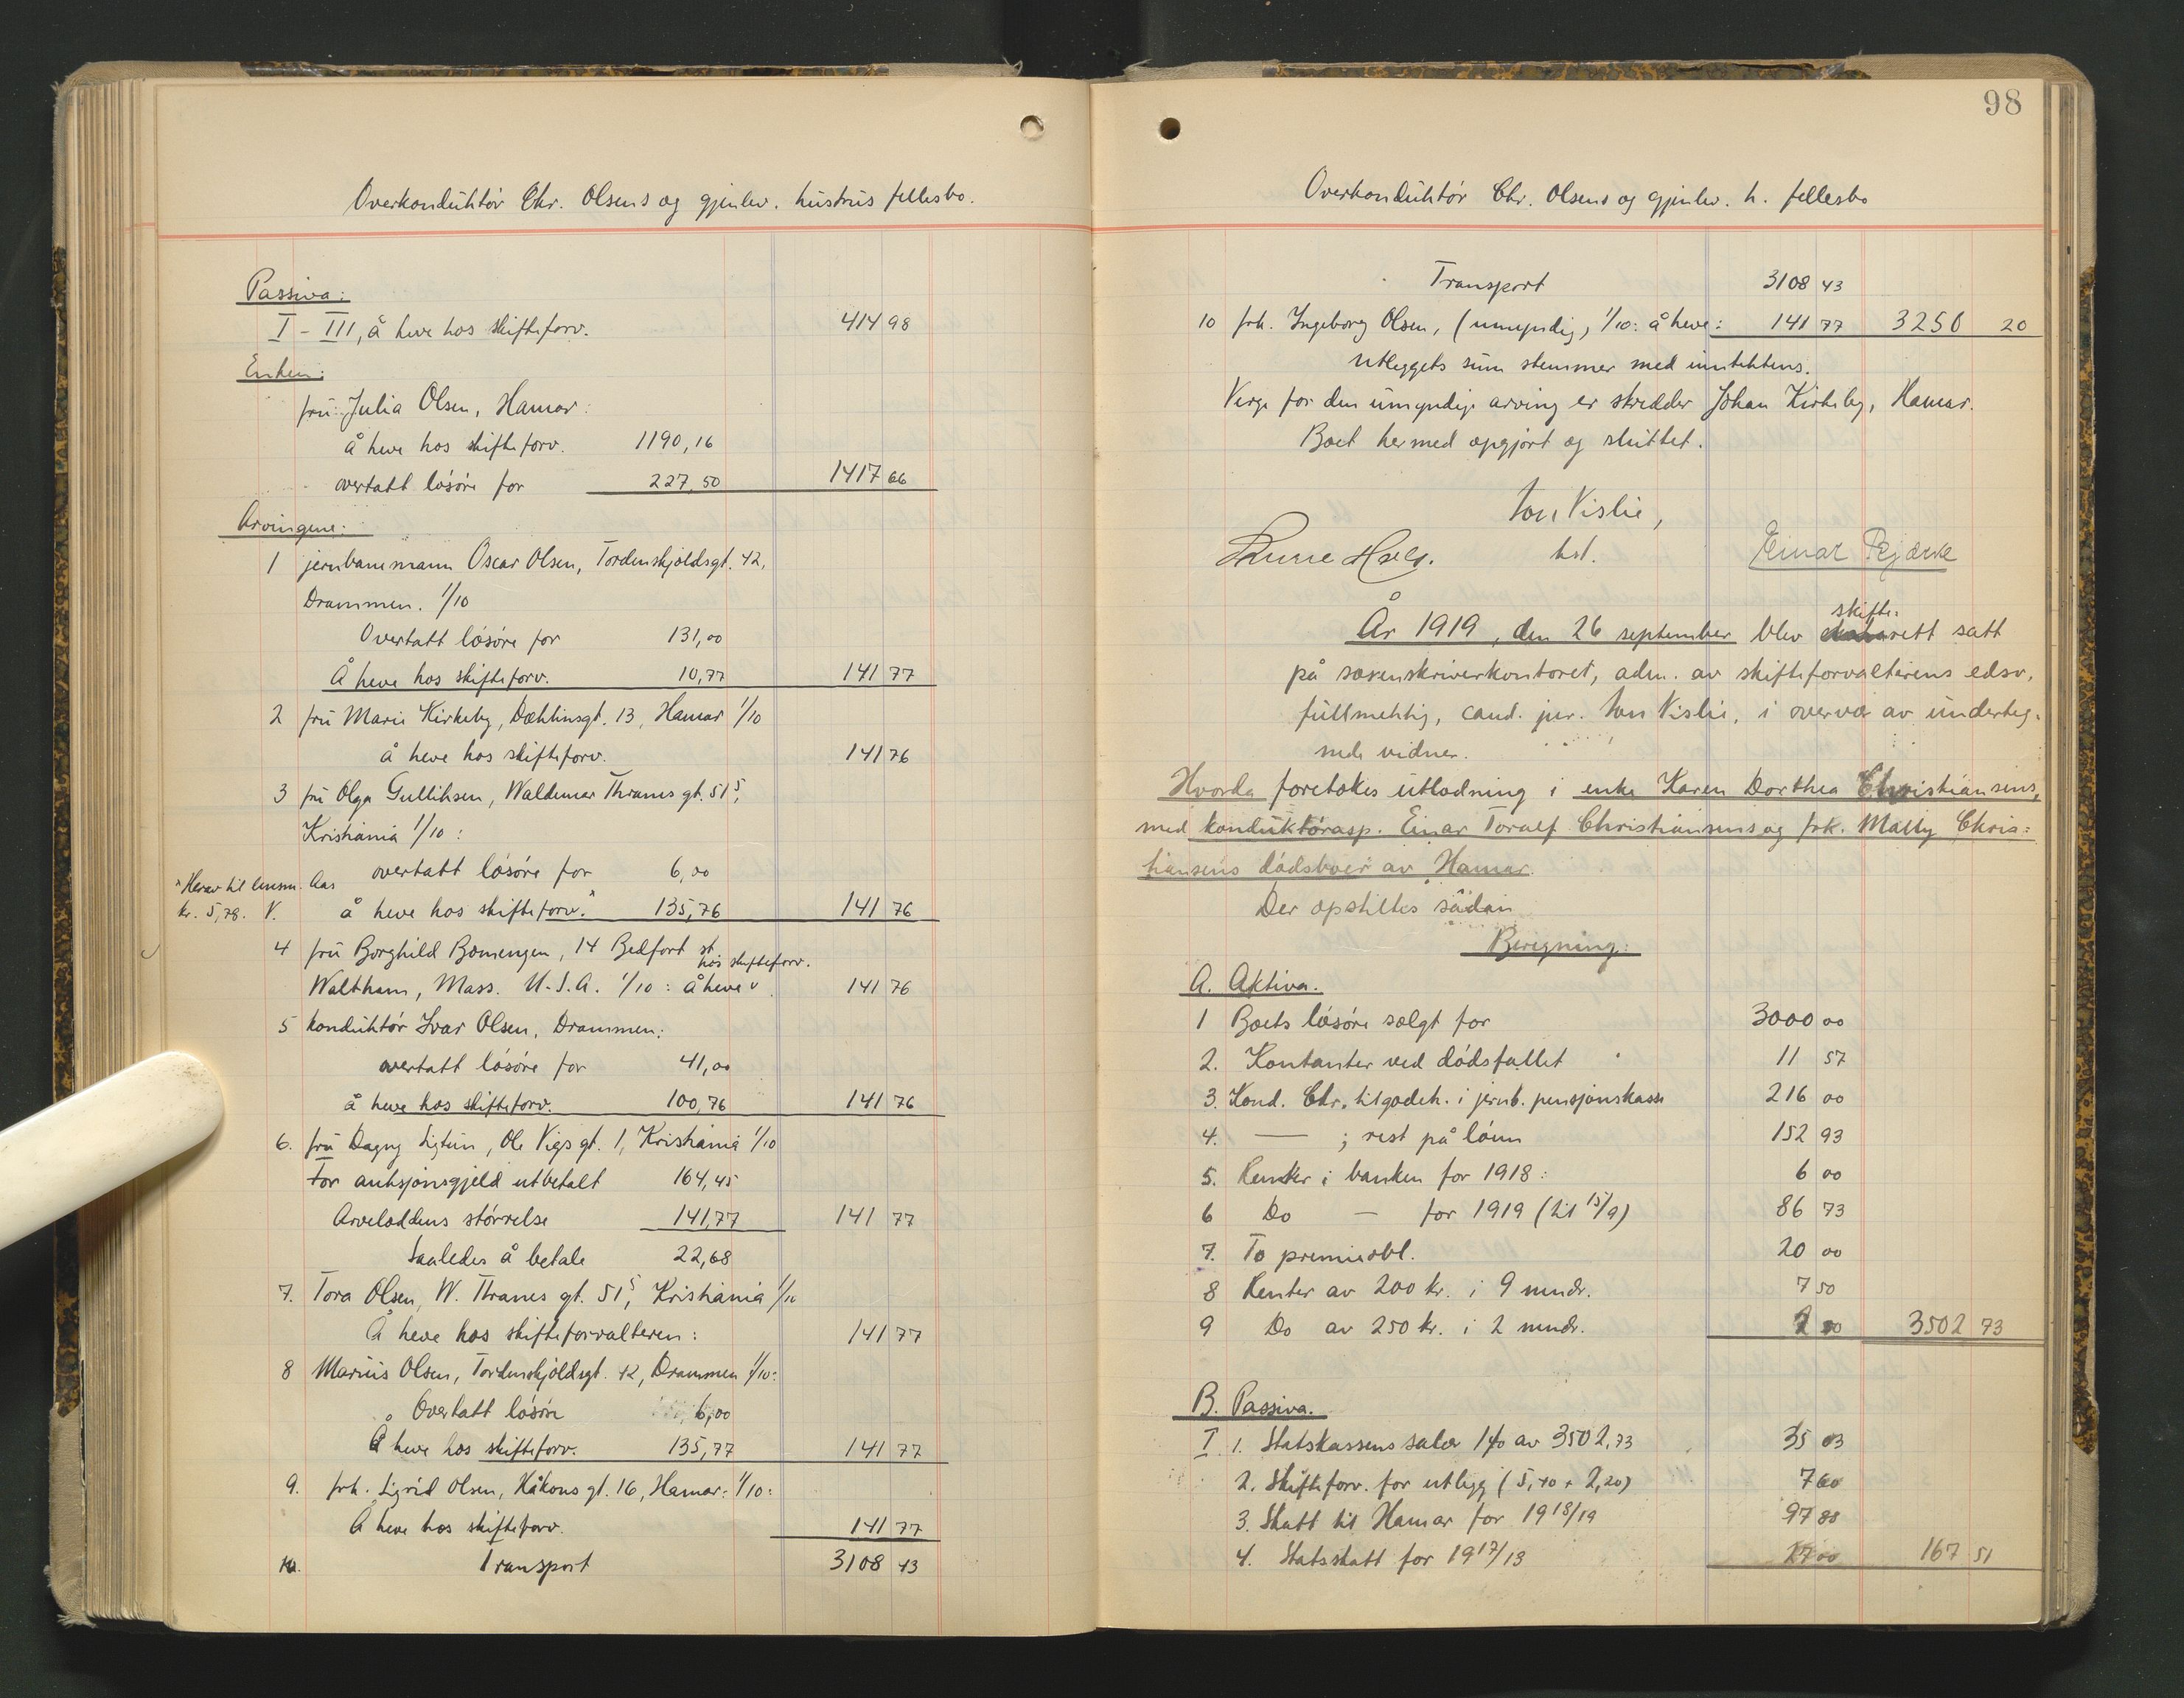 Overkonduktör Chr. Olsens og gjenlev. hustrus fellesbo.
Passiva:
I - III, å heve hos skifteforv. 414 98
Enken:
fru Julia Olsen, Hamar:
å heve hos skifteforv. 1190,16
overtatt lösöre for 227,50 1417 66
Arvingene:
1 jernbanemann Oscar Olsen, Tordenskjoldsgt. 42,
Drammen. 1/10
Overtatt lösöre for 131,00
Å heve hos skifteforv. 10,77 141 77
2 fru Marie Kirkeby, Dæhlinsgt. 13, Hamar 1/10
å heve hos skifteforv. 141 76
3 fru Olga Gulliksen, Waldemar Thranes gt. 51 5,
Kristiania 1/10:
overtatt lösöre for 6,00
"Herav til lensm. Aas
kr. 5,78. V.
å heve hos skifteforv." 135,76 141 76
4 fru Borghild Bomengen, 14 Bedfort st
hos skifteforv.
Waltham, Mass. U.S.A. 1/10: å heve v 141 76
5 konduktör Ivar Olsen, Drammen:
overtatt lösöre for 41,00
å heve hos skifteforv. 100,76 141 76
6. fru Dagny Sigtun, Ole Vigs gt. 1, Kristiania 1/10
For auksjonsgjeld utbetalt 164,45
Arveloddens störrelse 141,77 141 77
Saaledes å betale 22,68
7. Tora Olsen, W. Thranes gt. 51 5, Kristiania 1/10
Å heve hos skifteforvalteren: 141 77
8 Marius Olsen, Tordenskjoldsgt. 42, Drammen 1/10:
Overtatt lösöre 6,00
Å heve hos skifteforv. 135,77 141 77
9. frk. Sigrid Olsen, Håkons gt. 16, Hamar: 1/10:
Å heve hos skifteforv. 141 77
Transport 3108 43
98
Overkonduktör Chr. Olsens og gjenlev. h. fellesbo
Transport 3108 43
10 frk. Ingeborg Olsen, (umyndig) 1/10: å heve: 141 77 3250 20
Utleggets sum stemmer med inntektens.
Verge for den umyndige arving er skredder Johan Kirkeby, Hamar.
Boet hermed opgjort og sluttet.
Ton Vislie,
hst. Einar
År 1919, den 26 september blev skifterett satt
på sorenskriverkontoret, adm. av skifteforvalterens edsv.
fullmektig, cand. jur. Ton Vislie, i overvær av underteg-
nede vidner.
Hvorda foretokes utlodning i enke Karen Dorthea Christiansens,
med konduktörasp. Einar Toralf Christiansens og frk. Mally Chris=
tiansens dödsboer av Hamar.
Der opstilles sådan
Beregning:
A. Aktiva.
1 Boets lösöre solgt for 3000 00
2. Kontanter ved dödsfallet 11 57
3. Kond. Chr. tilgodeh. i jernb. pensjonskasse 216 00
4. — ; rest på lönn 152 93
5. Renter i banken for 1918: 6 00
6 Do — for 1919 (til 15/9) 86 73
7. To premieobl. 20 00
8 Renter av 200 kr. i 9 mndr. 7 50
9 Do av 250 kr. i 2 mndr. 2 00 3502 73
B. Passiva.
I. 1. Statskassens salær 1% av 3502,73 35 03
2. Skifteforv. for utlegg (5,40 + 2,20) 7 60
3. Skatt til Hamar for 1918/19 97 88
4. Statsskatt for 1917/18 27 00 167 51